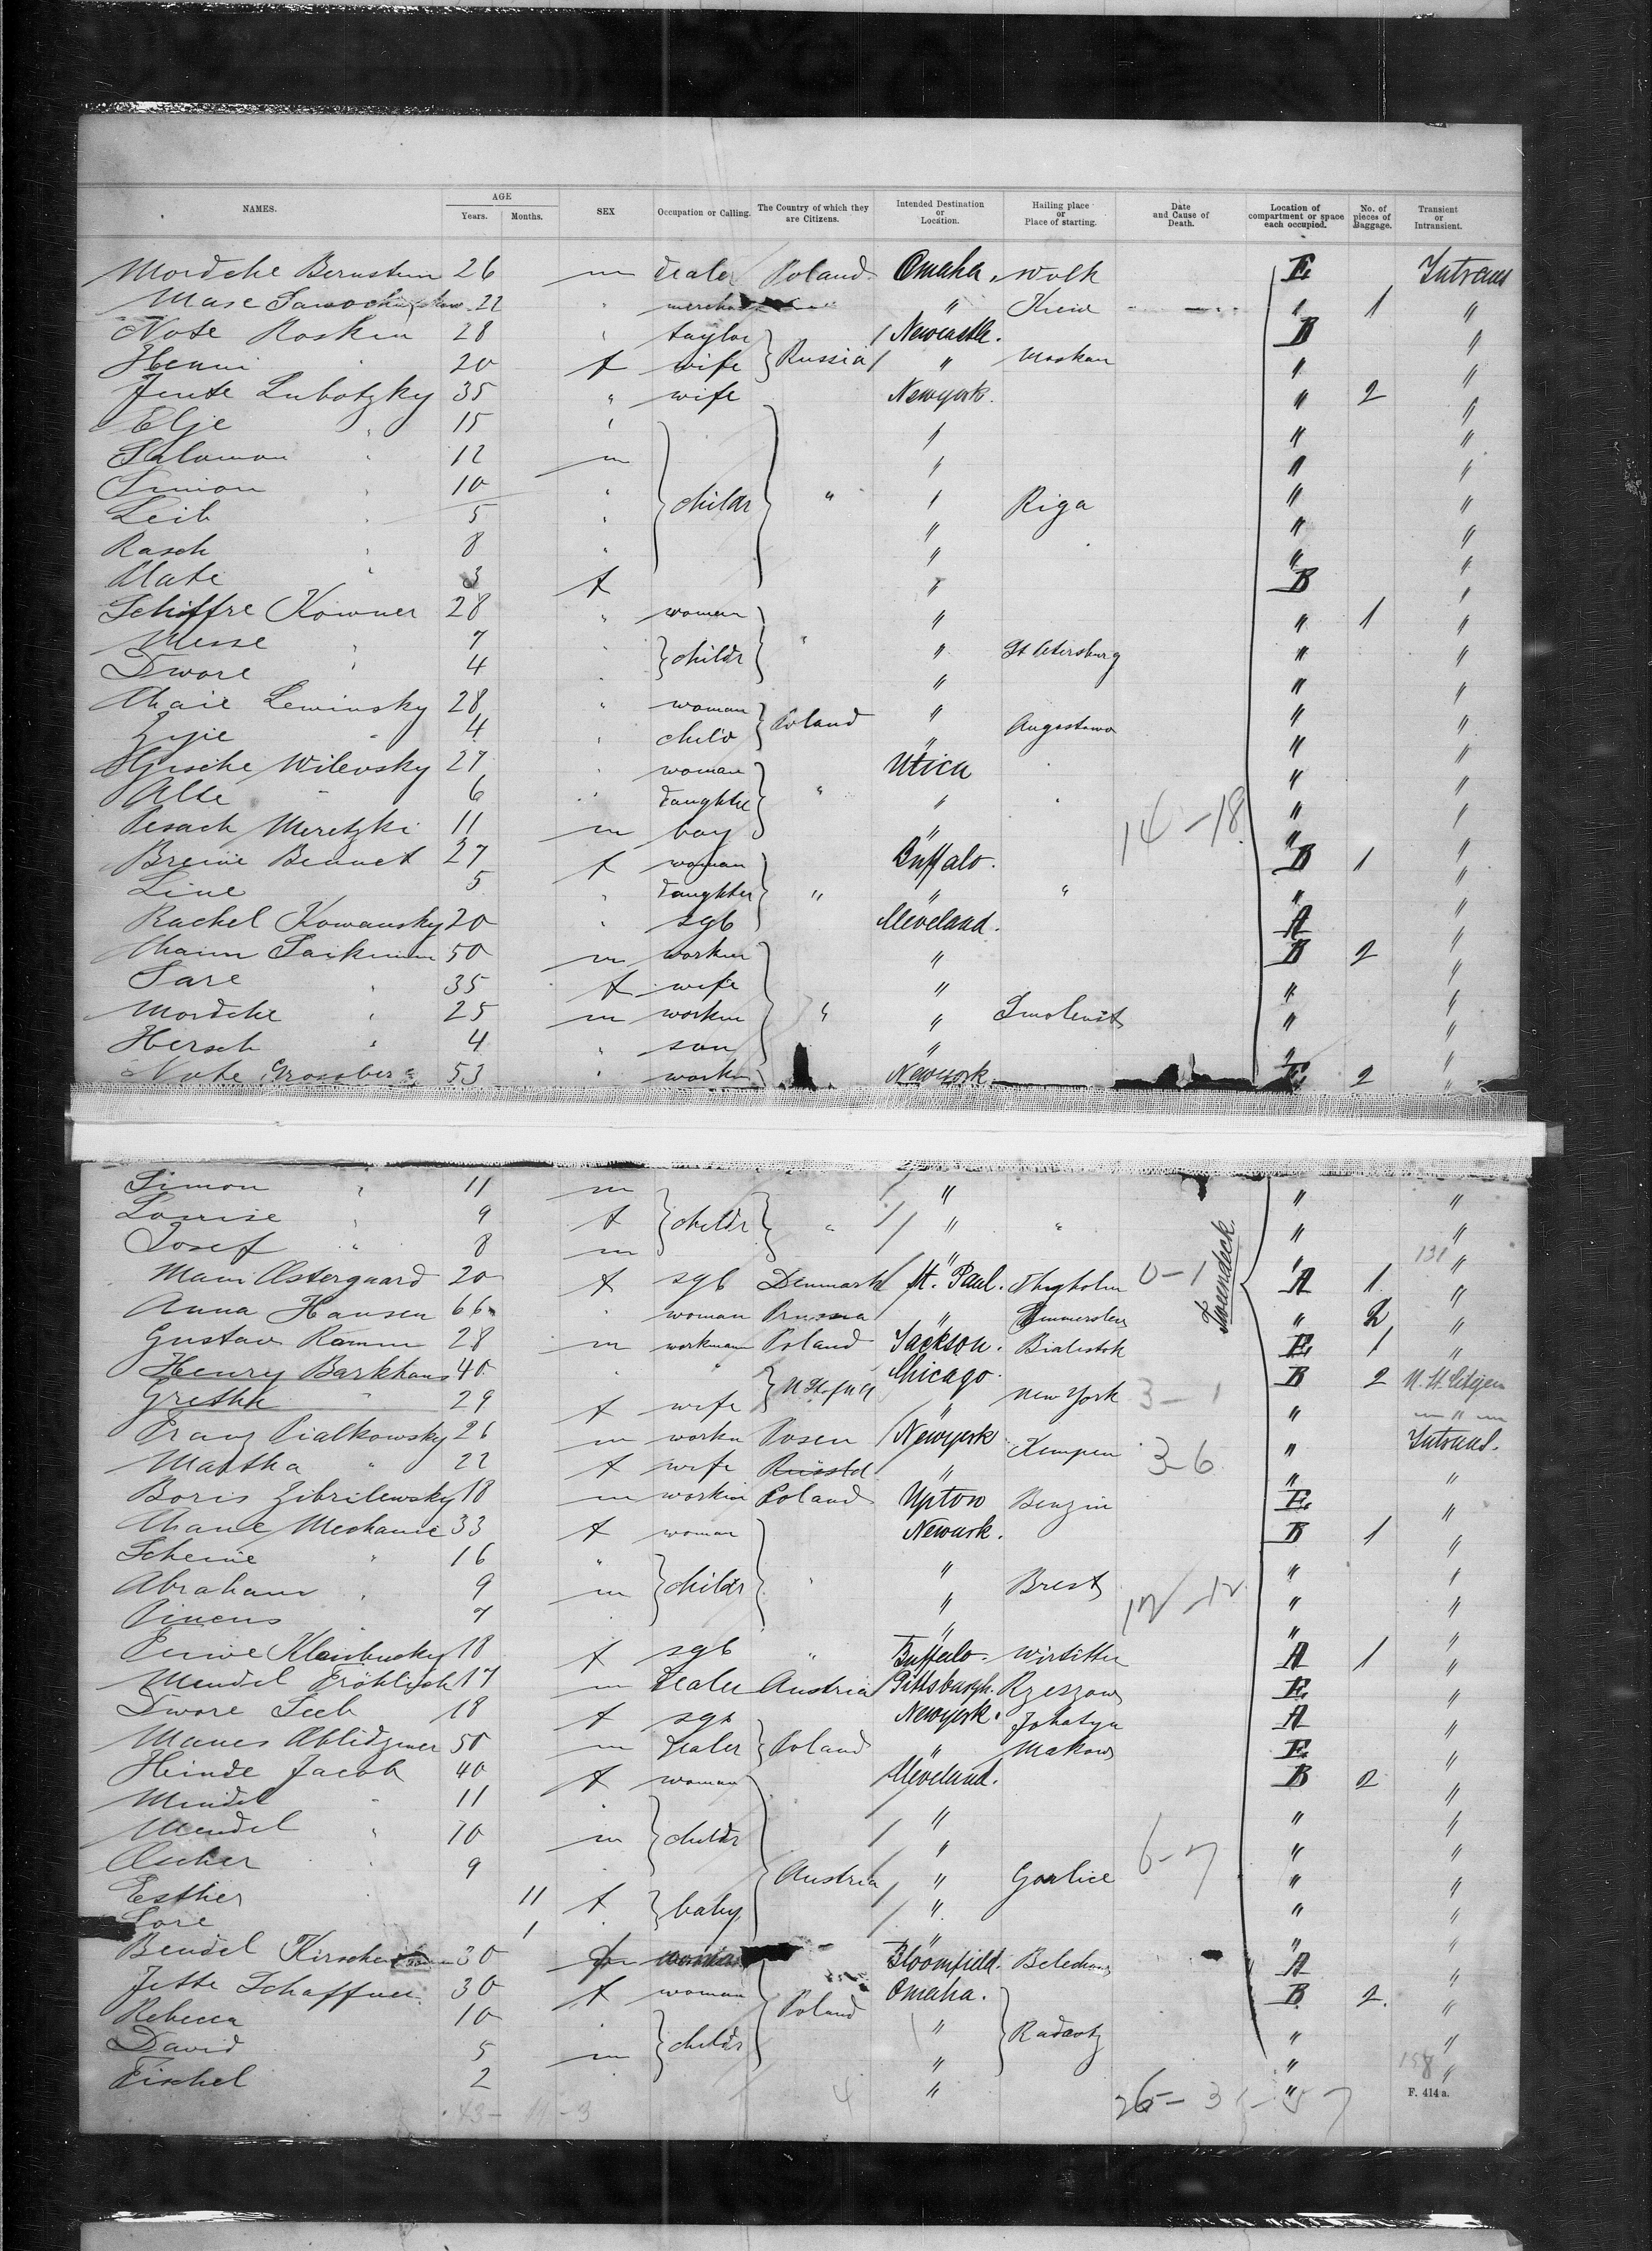 NAMES. AGE Years. Months. SEX Occupation or Calling. The Country of which they are Citizens. Intended Destination or Location. Hailing place or Place of starting. Date and Cause of Death. Location of compartment or space each occupied. No. of pieces of Baggage. Transient or Intransient.
Mordche Bernstein 26 m dealer Poland Omaha. Wolk E. Intrans
Mase 22 " " Kiew " 1 "
Note Roskin 28 " taylor Newcastle. B "
Henni " 20 f wife Russia " Moskau " "
Jente Lubotzky 35 " wife Newyork. " 2 "
Elje " 15 " " " "
Salomon " 12 m " " "
Simon " 10 " childr " " Riga " "
Leib " 5 " " " "
Rasch " 8 " " " "
Mate " 3 f " B "
Schiffre Kowner 28 " woman " " 1 "
Messe " 7 " childr " " St Petersburg " "
Dwore " 4 " " " "
Chaie Lewinsky 28 " woman Poland " " "
Zyie " 4 " child " Augostowo " "
Gische Wilevsky 27 " woman Utica " "
Alte " 6 " daughter " " " " "
Pesach Meretzki 11 m boy " 14-18 " "
Breine Bennet 27 f woman Buffalo. B 1 "
Line 5 " daughter " " " " "
Rachel Kowansky 20 " sgb Cleveland. A "
Chaim 50 m workm " B 2 "
Sare " 35 f wife " " "
Mordche " 25 m workm " " Smolensk " "
Hersch " 4 " son " " "
Note Grossberg 53 " workm Newyork. E. 2 "
Simon " 11 m " " "
Louise " 9 f childr " " " " "
Josef " 8 m " " 131 "
Mari Østergaard 20 f sgb Denmark St. Paul. Thyholm 0-1 Tweendeck A 1 "
Anna Hansen 66 " woman Prussia " " 2 "
Gustav Ramm 28 m workmann Poland Jackson. Bialistok E. 1 "
Henry Barkhaus 40 " " U. St. of N A Chicago. B 2 U. St. Citizen
Grethe " 29 f wife " New York 3-1 " "
Franz Pialkowsky 26 m workm Posen Newyork Kempen 3-6 " Intrans.
Martha " 22 f wife Russld " " "
Boris Zibrilewsky 18 m workm Poland Upton Benzin E. "
Chane Mechanie 33 f woman Newark. B 1 "
Scheine " 16 " childr " " "
Abraham " 9 m " " Brest 12-12 " "
Pincus 7 " " " "
18 f sgb " Buffalo. A 1 "
Mendel Fröhlich 17 m dealer Austria Pittsburgh. Rzeszow E. "
Dwore Seeb 18 f sgb Newyork. A "
Manes 50 m dealer Poland " Makow E. "
Heinde Jacob 40 f woman Cleveland. B 2 "
Mindel " 11 " " " "
Mendel " 10 m childr " " "
Ascher " 9 " Austria " Gorlice 6-7 " "
Esther 11 f baby " " "
Sore 1 " " " "
Beudel 30 Bloomfield. A "
Jette Schaffner. 30 f woman Poland Omaha. B 2. "
Rebecca 10 " childr " Radautz " "
David 5 m " " 158 "
Fischel 2 4 " 26- " F. 414 a.